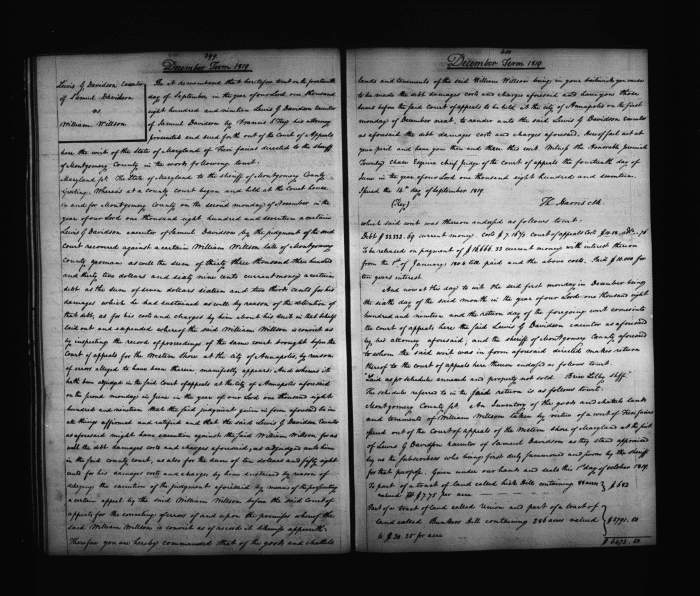 399
December Term 1819
Lewis G Davidson Executor
of Samuel Davidson
vs
William Willson
Be it remembered that heretofore to wit on the fourteenth
day of September in the year of our Lord one thousand
eight hundred and nineteen Lewis G Davidson executor
of Samuel Davidson by Francis S Key his attorney
prosecuted and sued forth out of the Court of Appeals
here the writ of the State of Maryland of Fieri facias directed to the sheriff
of Montgomery County in the words following towit.
Maryland sct. The State of Maryland to the sheriff of Montgomery County
Greeting. Whereas at a county court begun and held at the Court house
in and for Montgomery County on the second monday of november in the
year of our Lord one thousand eight hundred and seventeen a certain
Lewis G Davidson executor of Samuel Davidson by the judgment of the said
court recovered against a certain William Willson late of Montgomery
County yeoman as well the sum of thirty three thousand three hundred
and thirty two dollars and sixty nine cents current money a certain
debt as the sum of seven dollars sixteen and two thirds cents for his
damages which he had sustained as well by reason of the detention of
that debt, as for his costs and charges by him about his suit in that behalf
laid out and expended whereof the said William Willson is convict as
by inspecting the record of proceedings of the same court brought before the
Court of appeals for the Western Shore at the city of Annapolis, by reason
of errors alleged to have been therein manifestly appears And whereas it
hath been adjudged in the said Court of appeals at the city of Annapolis aforesaid
on the second monday in june in the year of our Lord one thousand eight
hundred and nineteen that the said judgment given in form aforesaid be in
all things affirmed and ratified and that the said Lewis G Davidson Executor
as aforesaid might have execution against the said William Willson for as
well the debt damages costs and charges aforesaid, as adjudged unto him
in the said county court, as also for the sum of ten dollars and fifty eight
cents for his damages costs and charges by him sustained by reason of
delaying the execution of the judgment aforesaid by means of the prosecuting
a certain appeal by the said William Willson before the said court of
appeals for the correcting of errors of and upon the premises whereof the
said William Willson is convict as of record it likewise appeareth.
Therefore you are hereby commanded that of the goods and chattels
400
December Term 1819.
lands and tenements of the said William Willson being in your bailiwick you cause
to be made the debt damages costs and charges aforesaid and have you those
sums before the said court of appeals to be held at the city of Annapolis on the first
monday of December next, to render unto the said Lewis G Davidson executor
as aforesaid the debt damages costs and charges aforesaid. Hereof fail not at
your peril and have you then and there this writ. Witness the Honorable Jeremiah
Townley Chase Esquire chief judge of the court of appeals the fourteenth day of
June in the year of our Lord one thousand eight hundred and seventeen.
Issued the 14th day of September 1819.
(Key) Th. Harris clk.
which said writ was thereon endorsed as follows towit.
Debt $ 33.332.69 current money. Cost $ 7.16 2/3 court of appeals Cost
To be released on payment of $ 16.666.33 current money with interest thereon
from the 1st of January 1806 till paid and the above costs. Paid $ 10.000 for
ten years interest.
And now at this day to wit the said first monday in December being
the sixth day of the said month in the year of our Lord one thousand eight
hundred and nineteen and the return day of the foregoing writ comes into
the court of appeals here the said Lewis G Davidson executor as aforesaid
by his attorney aforesaid; and the sheriff of Montgomery County aforesaid
to whom the said writ was in form aforesaid directed makes return
thereof to the court of appeals here thereon endorsed as follows towit.
"Laid as per schedules annexed and property not sold. Shff."
The schedules referred to in the said return is as follows towit.
Montgomery County sct. An Inventory of the goods and chattels lands
and tenements of William Willson taken by virtue of a writ of Fieri facias
issued out of the court of appeals of the Western Shore of Maryland at the suit
of Lewis G Davidson executor of Samuel Davidson as they stand appraised
by us the Subscribers who being first duly summoned and sworn by the sheriff
for that purpose. Given under our hands and seals this 1st day of october 1819.
To part of a tract of land called hill containing 88 acres } $ 682
valued at $ 7.75 per acre
Part of a tract of land called Union and part of a tract of
land called Bunkers hill containing 286 acres valued } $ 5791.50
at $ 20.25 per acre
$ 6473.50